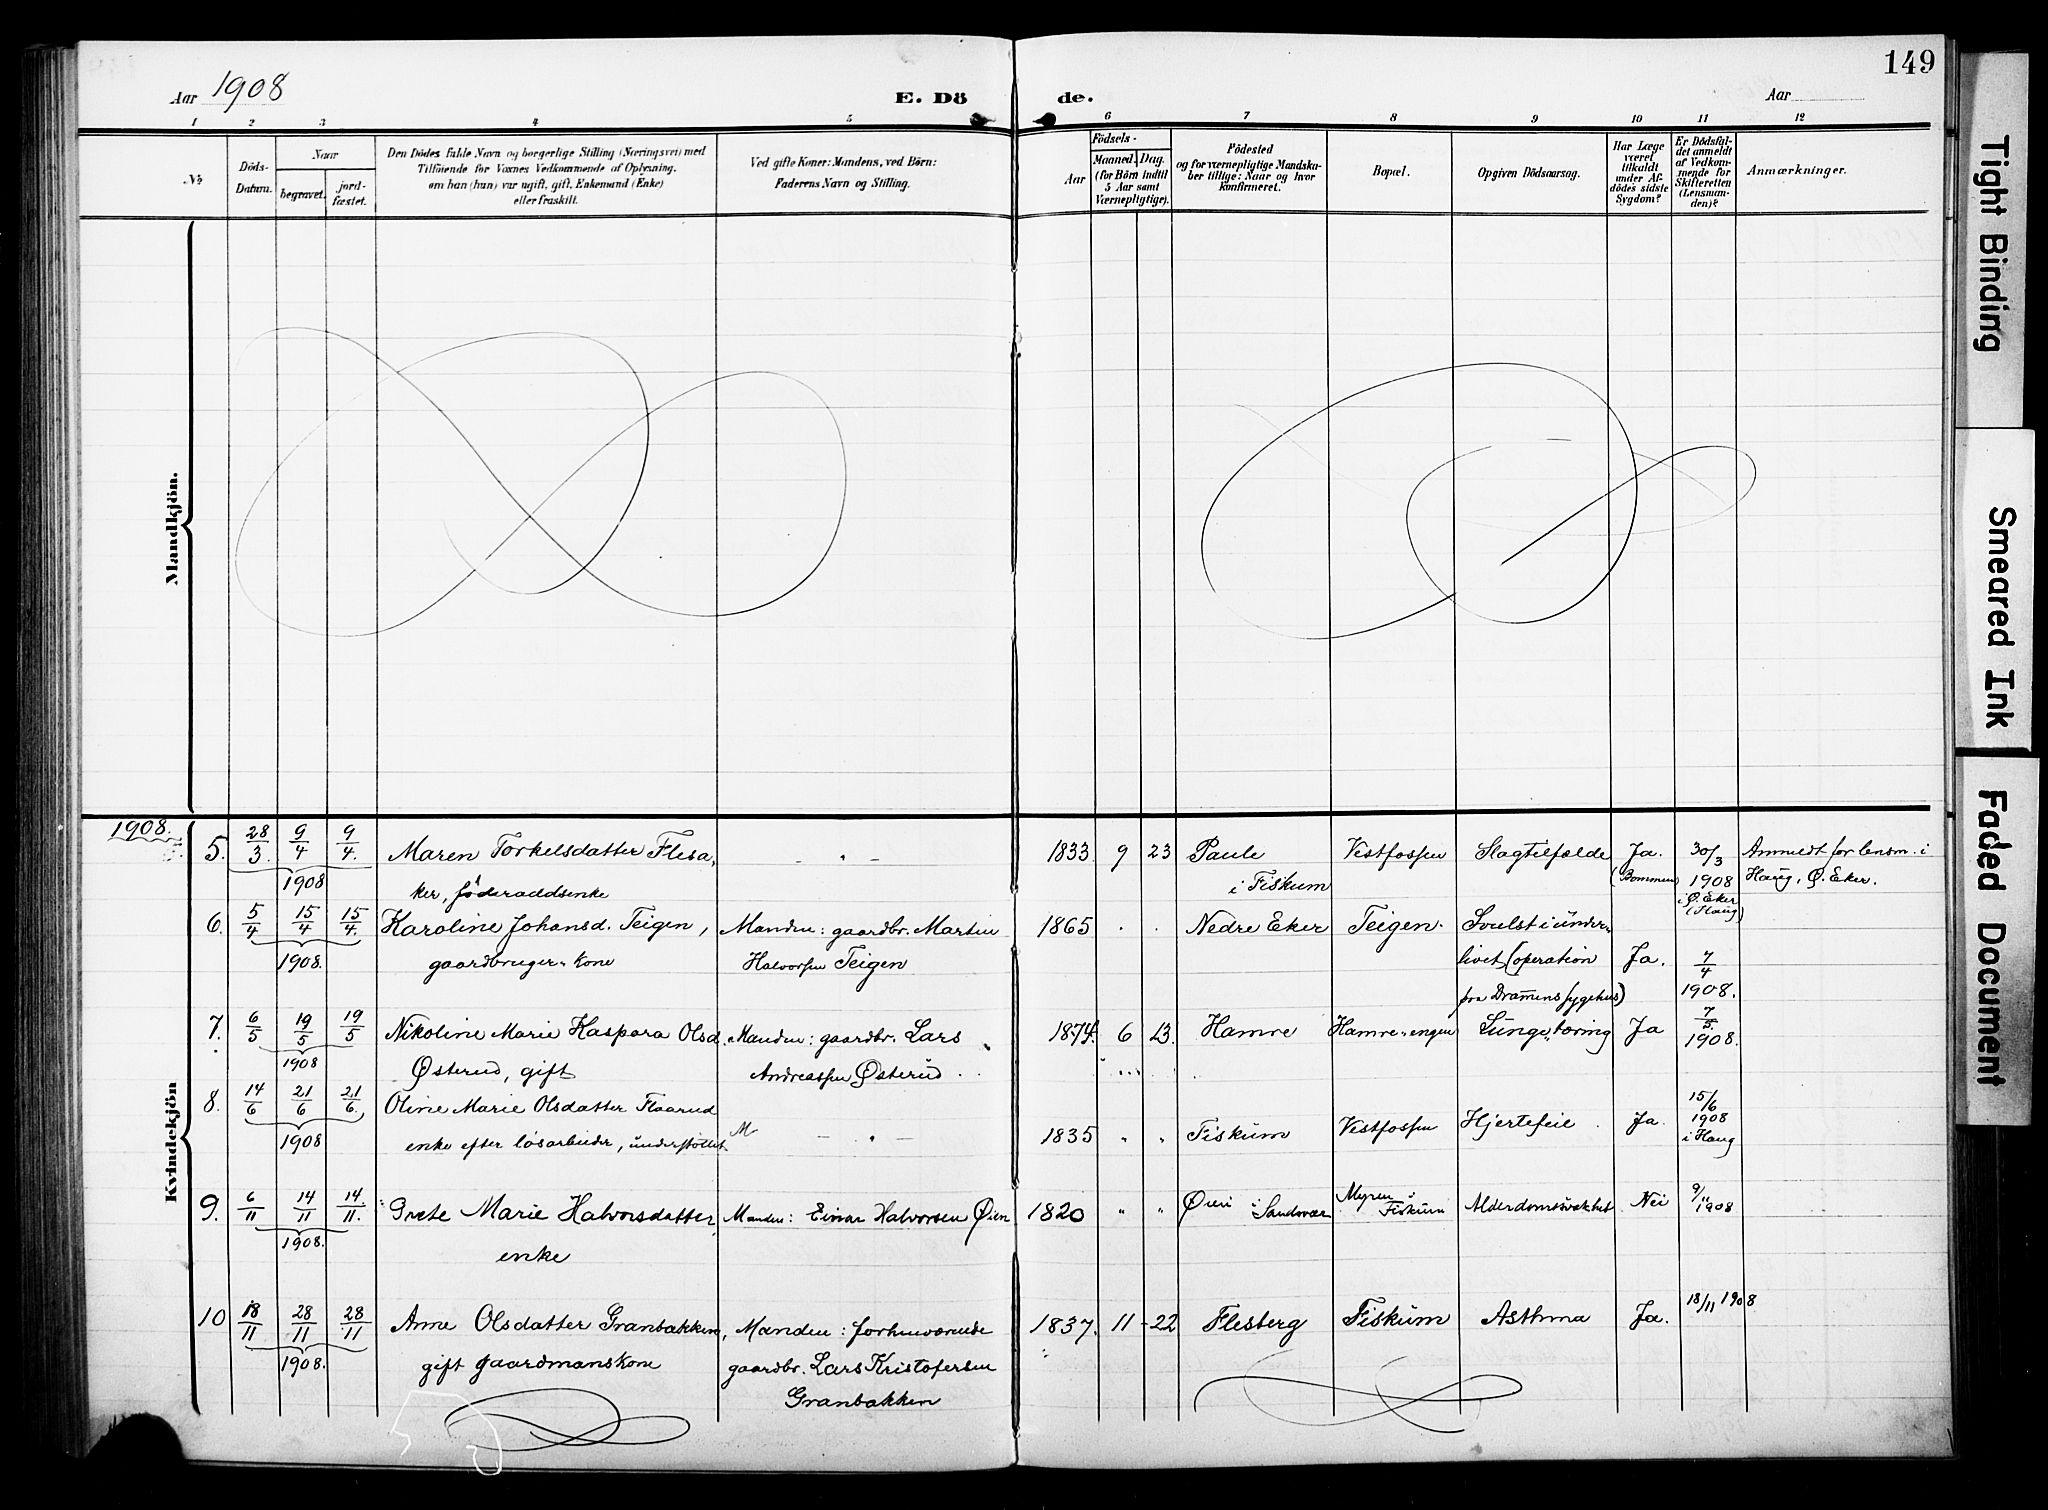 149
Aar 1908
E. Dö de.
Aar
1 2 3 4 5 6 7 8 9 10 11 12
No
Döds-
Datum.
Naar
begravet.
jord-
fæstet.
Den Dödes fulde Navn og borgerlige Stilling (Næringsvei) med
Tilföiende for Voxnes Vedkommende af Oplysning.
om han (hun) var ugift, gift, Enkemand (Enke)
eller fraskilt.
Ved gifte Koner: Mandens, ved Börn:
Faderens Navn og Stilling.
Födsels-
Aar
Maaned. Dag.
(for Börn indtil
5 Aar samt
Værnepligtige).
Födested
og for værnepligtige Mandska-
ber tillige: Naar og hvor
konfirmeret.
Bopæl.
Opgiven Dödsaarsag.
Har Læge
været
tilkaldt
under Af-
dödes sidste
Sygdom?
Er Dödsfal-
det anmeldt
af Vedkom-
mende for
Skifteretten
(Lensman-
den)?
Anmærkninger.
Mandkjön.
Kvindekjön
1908.
5. 28/3. 9/4 9/4. Maren Torkelsdatter Flesa, - " - 1833. 9 23 Paule Vestfossen Slagtilfælde Ja. 30/3 Anmeldt for lensm. i
1908 ker, föderaadsenke i Fiskum (Bommen) 1908 Haug, Ø. Eker.
i Ø. Eker
(Haug)
6. 5/4 15/4 15/4. Karoline Johansd. Teigen, Manden: gaardbr. Martin 1865 . . Nedre Eker Teigen. Svulst i under-
1908. gaardbruger-kone Halvorsen Teigen livet (operation Ja. 7/4
fra Dramens sygehus) 1908.
7. 6/5 19/5 19/5 Nikoline Marie Kaspara Olsd. Manden: gaardbr. Lars 1874. 6 23. Hamre Hamre-engen Lunge-tæring Ja 7/5. 1908.
1908 Østerud, gift Andreassen Østerud
8. 14/6 21/6 21/6. Oline Marie Olsdatter Flaarud 15/6
1908 enke efter lösarbeider, understöttet M - " - 1835 " " Fiskum Vestfossen Hjertefeil. Ja. 1908
i Haug
9. 6/11 14/11 14/11. Grete Marie Halvorsdatter, Manden: Einar Halvorsen Øien 1820 " " Øien i Sandsvær Myren i Fiskum Alderdomssvakhet Nei 9/11 1908
1908. enke
10 18/11 28/11 28/11 Anne Olsdatter Granbakken, Manden: forhenværende 1837. 11 22 Flesberg Fiskum Asthma Ja. 18/11 1908
1908. gift gaardmanskone gaardbr. Lars Kristofersen
Granbakken
Tight Binding
Smeared Ink
Faded Document